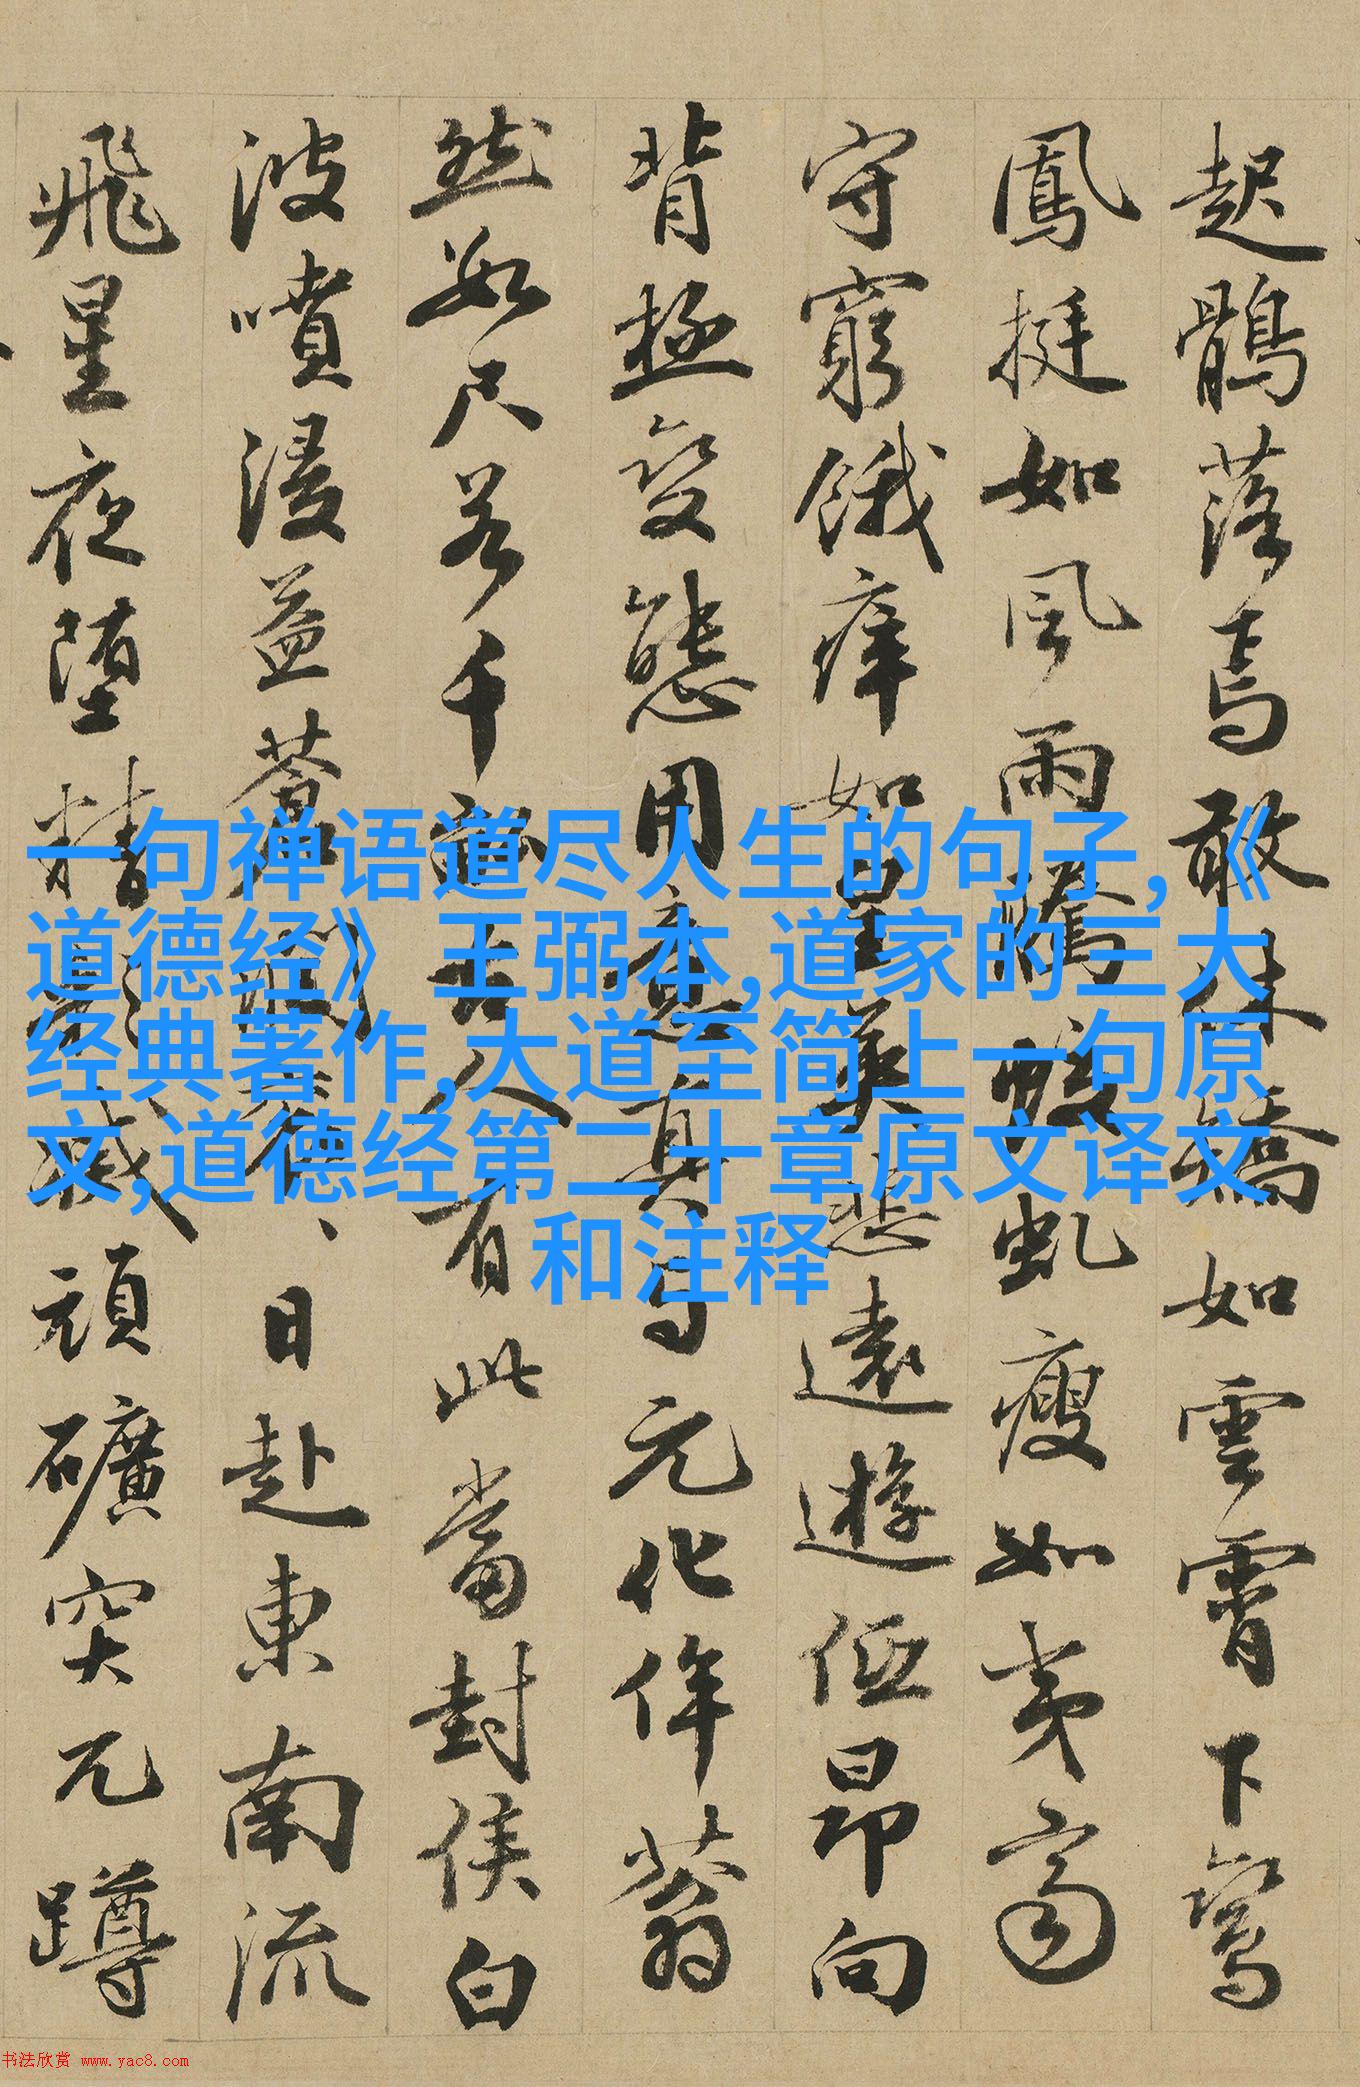 起鶻落焉敢休矯如雲霄下鸞
鳳挺如風雨騰蛟虬瘦如夷齊
守窮餓癢如皇英悲遠遊低昂向
背極變態用意真與元化侔蒼
然数尺若千畝古人有此當封侯白
波噴浸益日赴東南流
飛星夜墮精滅頑礦突兀蹲
一句禅语道尽人生的句子,《
道德经》王弼本,道家的三大
经典著作,大道至简上一句原
文,道德经第二十章原文译文
和注释
书法欣赏 www.yac8.com